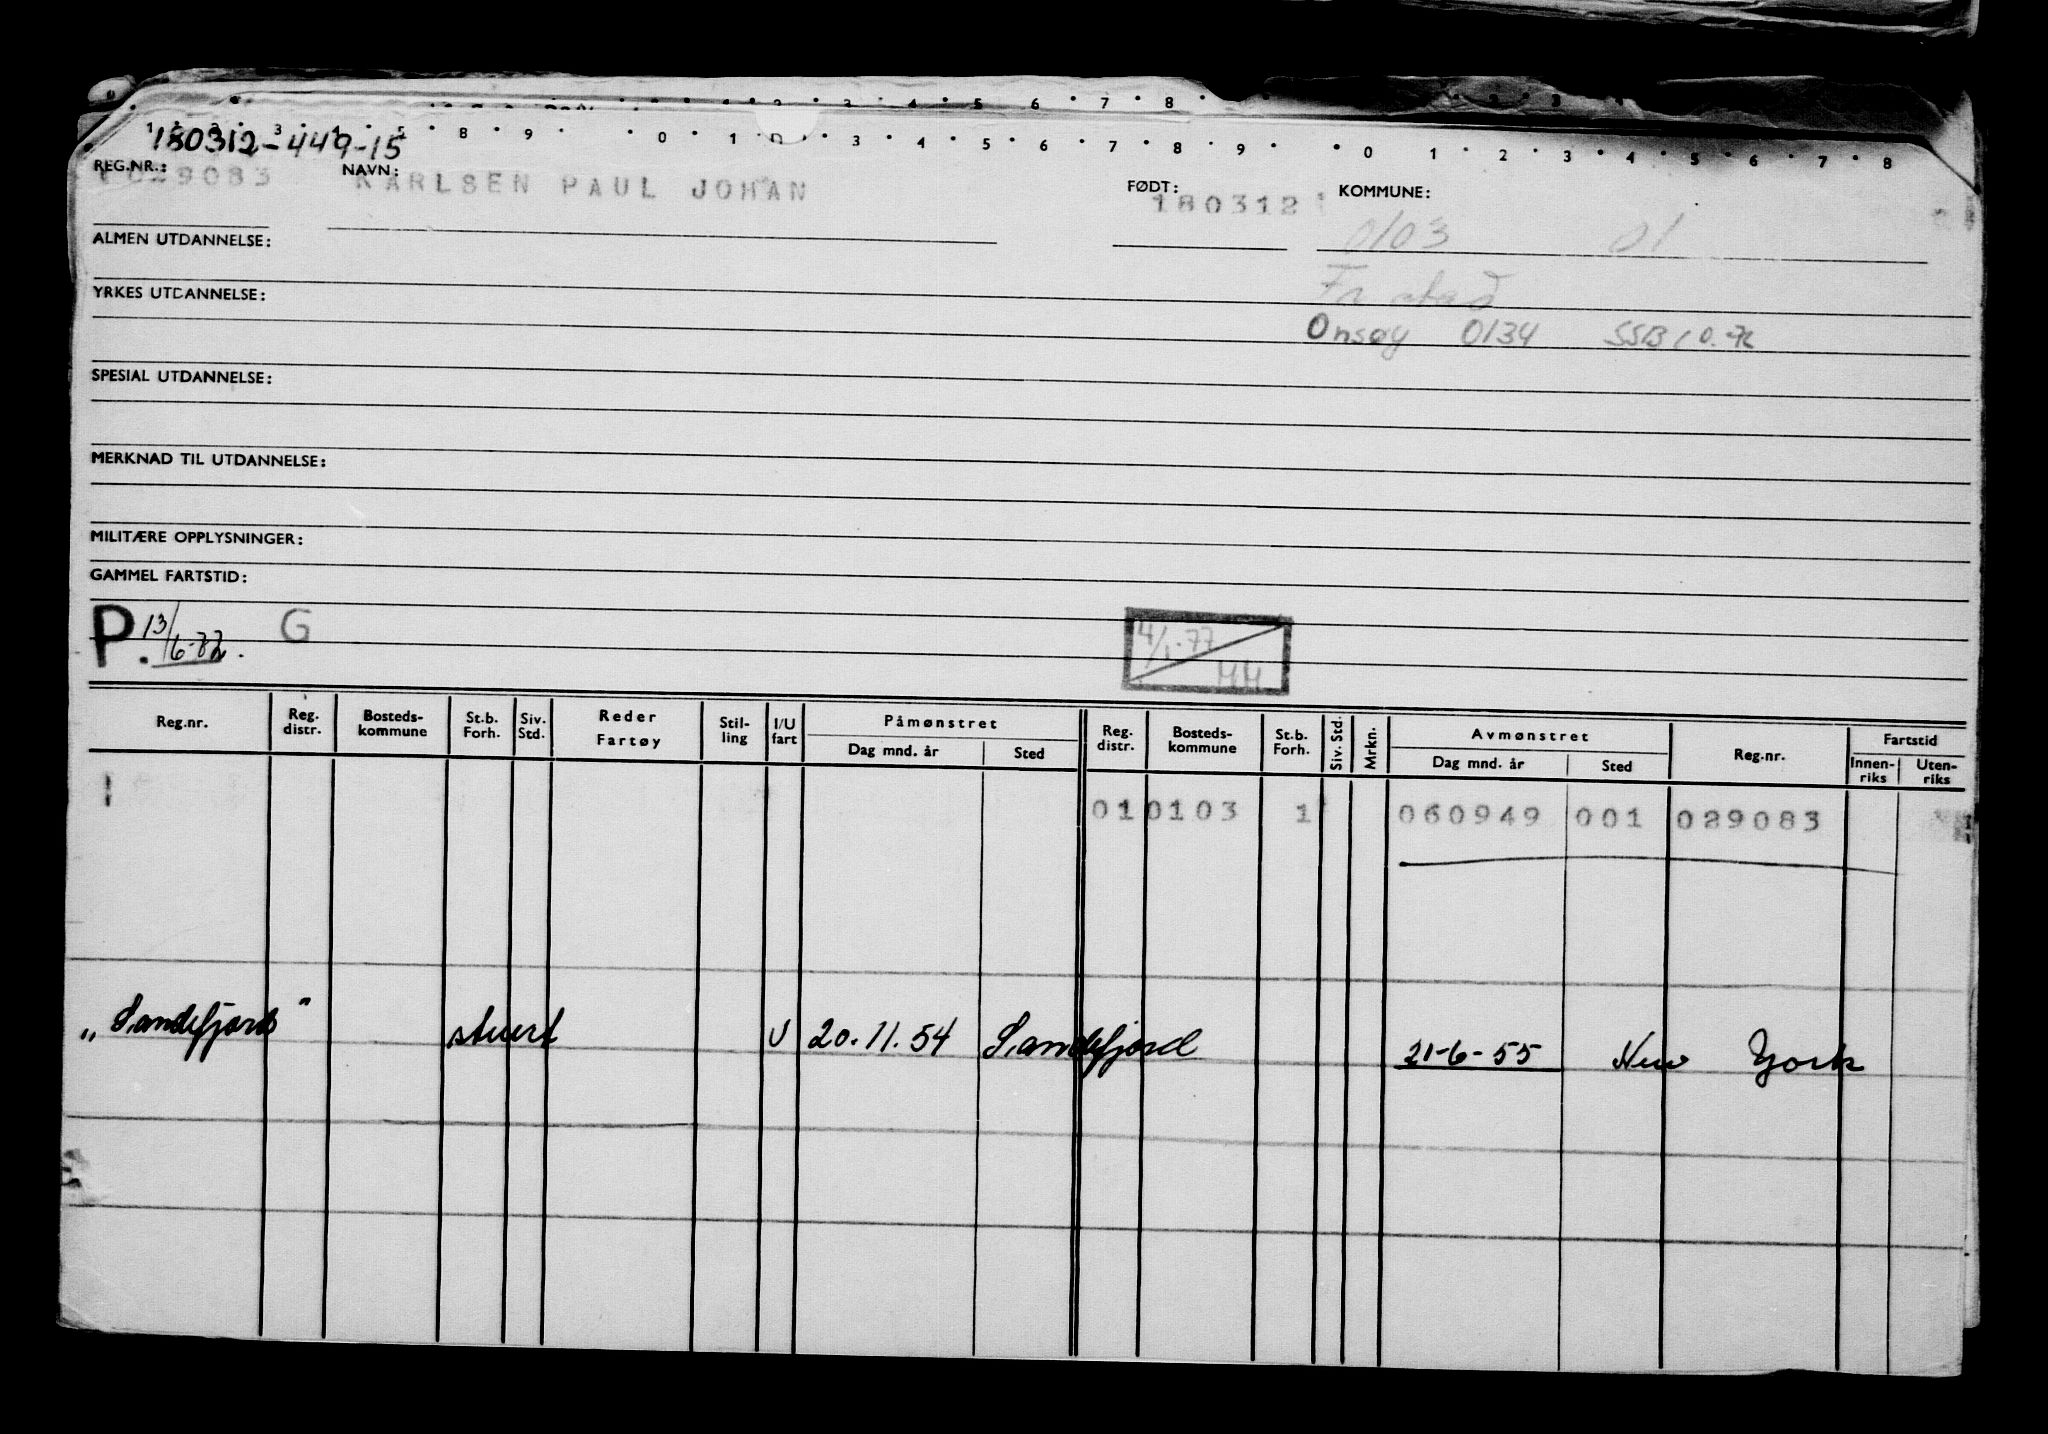 180312-449-15
REG.NR.: 029083 NAVN: KARLSEN PAUL JOHAN FØDT: 180312 KOMMUNE:
0103 01
ALMEN UTDANNELSE:
Fr stad
YRKES UTDANNELSE:
Onsøy 0134 SSB
SPESIAL UTDANNELSE:
MERKNAD TIL UTDANNELSE:
MILITÆRE OPPLYSNINGER:
GAMMEL FARTSTID:
P. 13/6-82. G 4/1-77 HH
Reg.nr. Reg. distr. Bosteds-kommune St.b. Forh. Siv. Std. Reder Fartøy Stil-ling I/U fart Påmønstret Dag mnd. år Sted Reg. distr. Bosteds-kommune St.b. Forh. Siv. Std. Mrkn. Avmønstret Dag mnd. år Sted Reg.nr. Fartstid Innen-riks Uten-riks
01 0103 1 060949 001 029083
"Sandefjord" stuert U 20.11.54 Sandefjord 21-6-55 New York